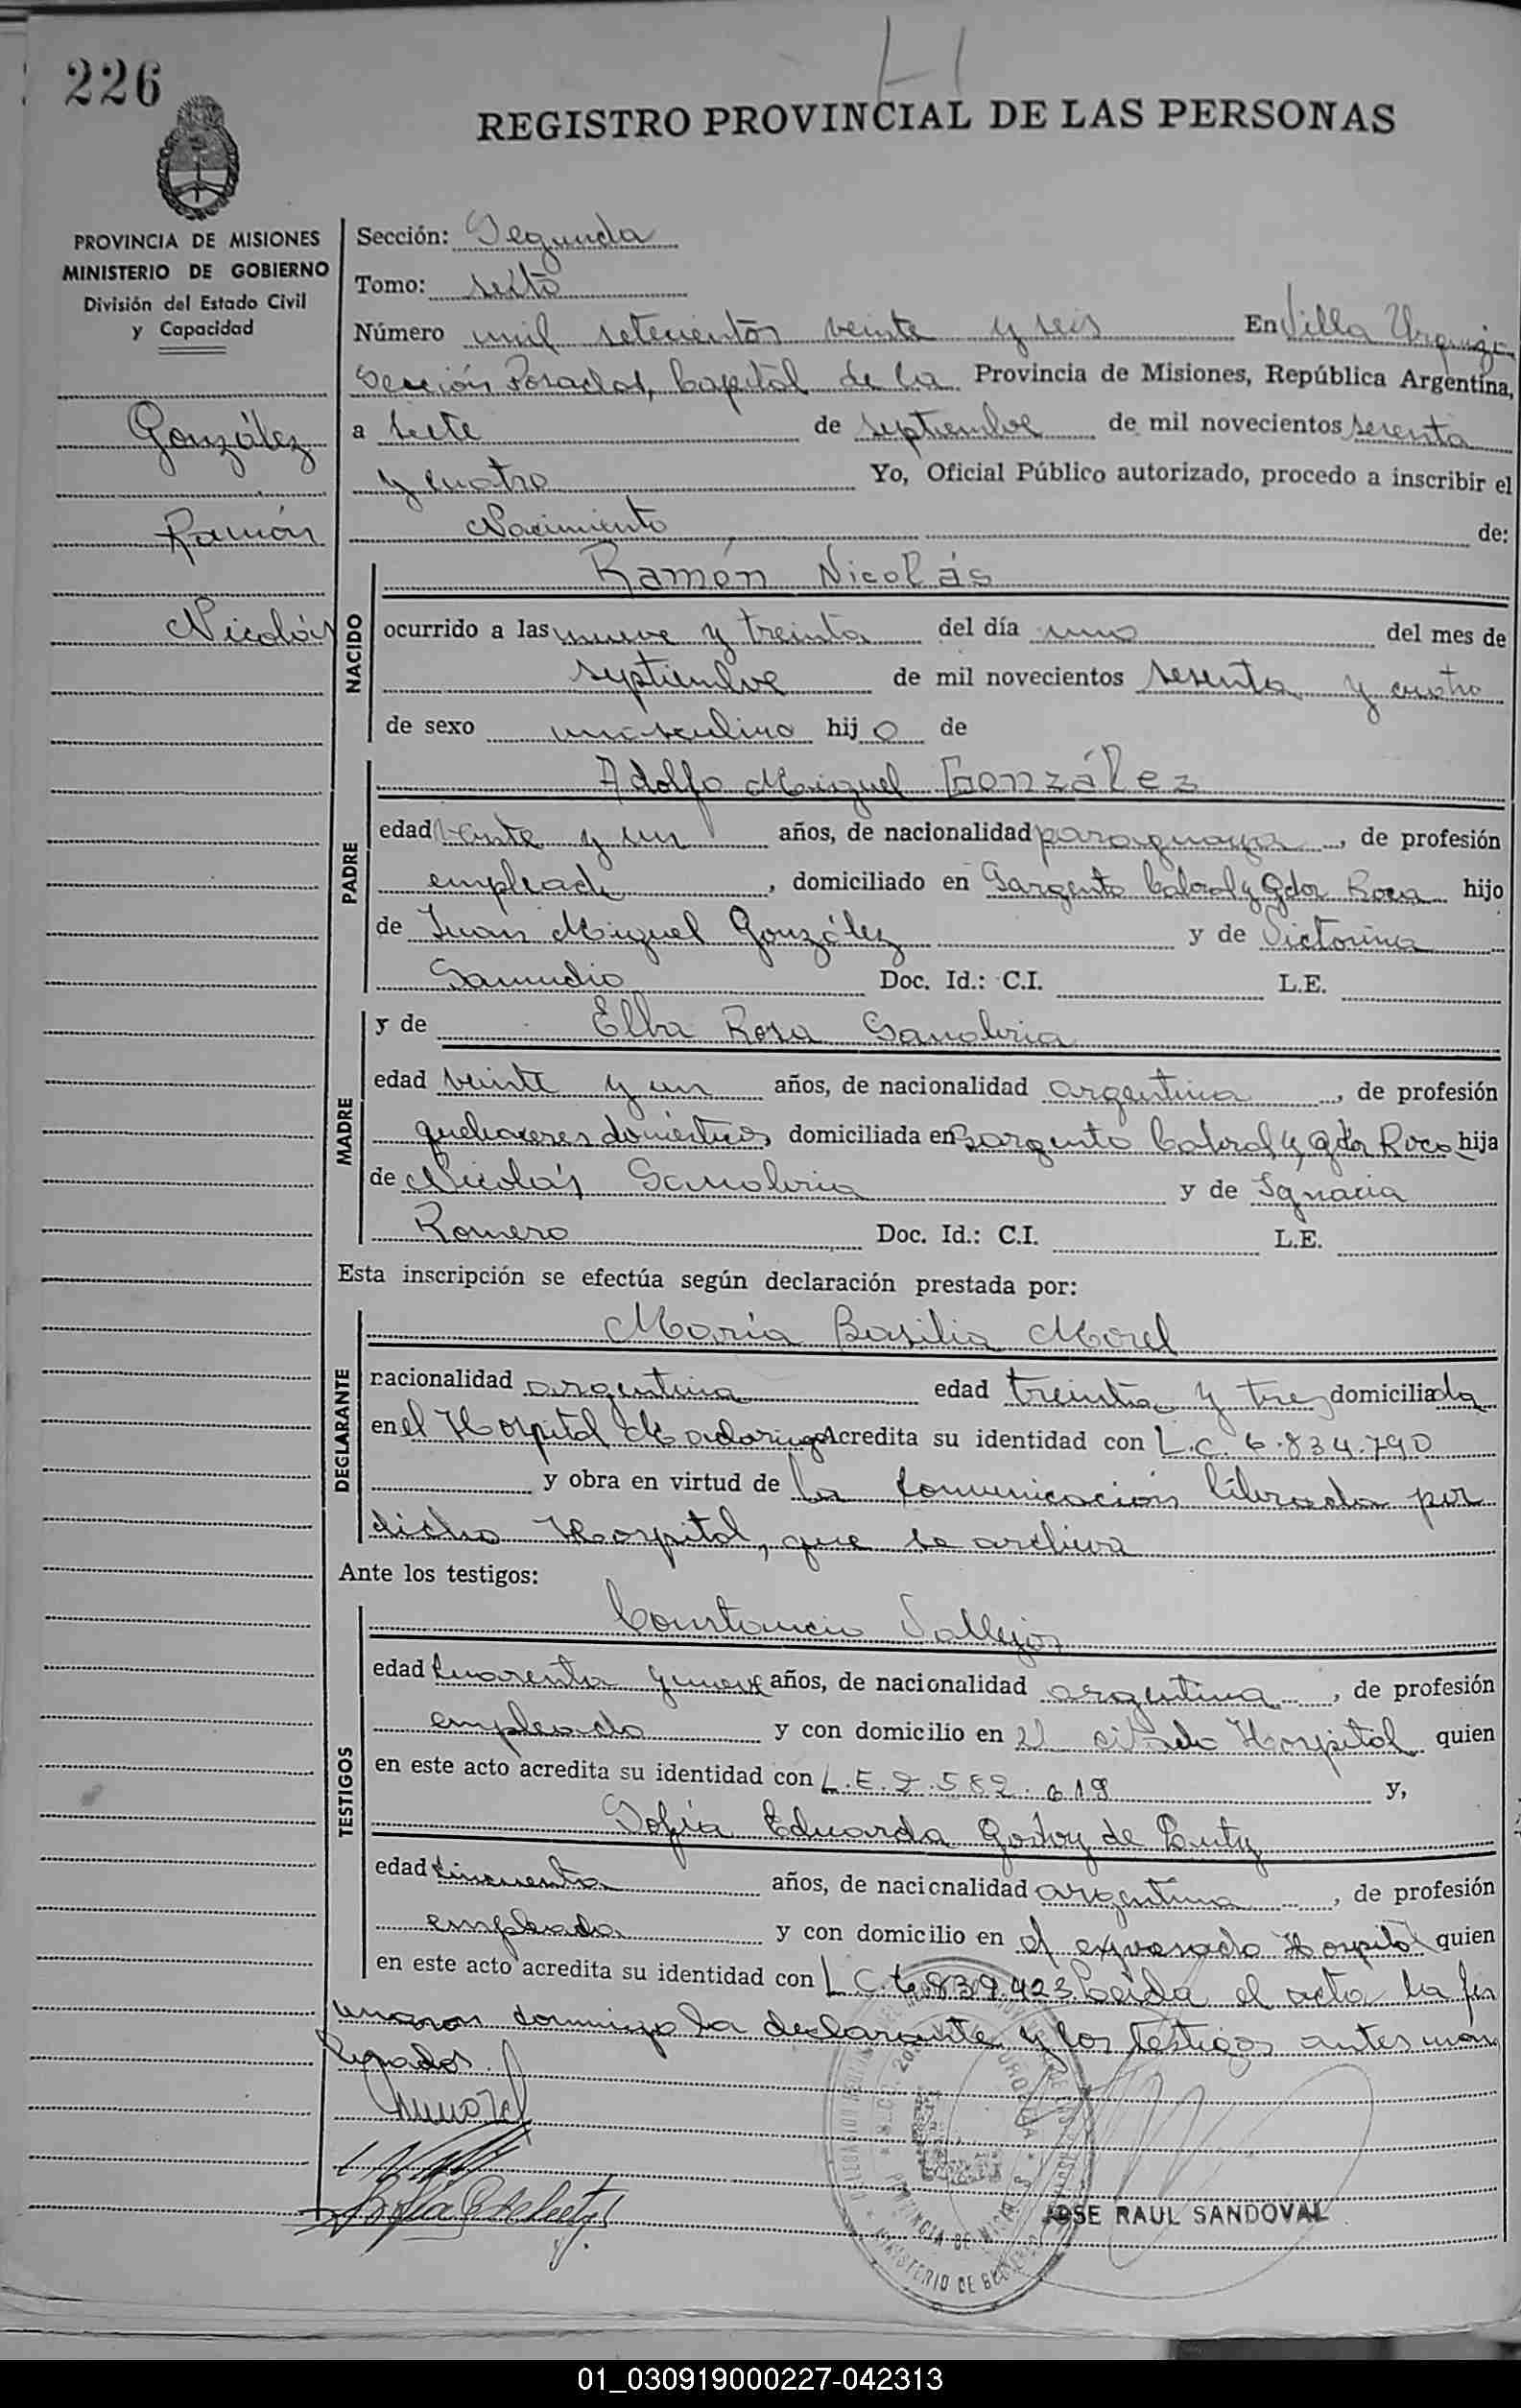 226
REGISTRO PROVINCIAL DE LAS PERSONAS
PROVINCIA DE MISIONES
MINISTERIO DE GOBIERNO
División del Estado Civil
y Capacidad
González
Ramón
Nicolás
Sección: Segunda
Tomo: sexto
Número mil setecientos veinte y seis En Villa Urquiza
Sección Posadas, Capital de la Provincia de Misiones, República Argentina,
a siete de septiembre de mil novecientos sesenta
y cuatro Yo, Oficial Público autorizado, procedo a inscribir el
Nacimiento de:
NACIDO
Ramón Nicolás
ocurrido a las nueve y treinta del día uno del mes de
septiembre de mil novecientos sesenta y cuatro
de sexo masculino hijo de
PADRE
Adolfo Miguel González
edad veinte y un años, de nacionalidad paraguaya, de profesión
empleado, domiciliado en Sargento Cabral y Gdor Roca hijo
de Juan Miguel González y de Victorina
Samudio Doc. Id.: C.I. L.E.
MADRE
y de Elba Rosa Sanabria
edad veinte y un años, de nacionalidad argentina, de profesión
quehaceres domésticos domiciliada en Sargento Cabral y Gdor Roca hija
de Nicolás Sanabria y de Ignacia
Romero Doc. Id.: C.I. L.E.
Esta inscripción se efectúa según declaración prestada por:
DECLARANTE
María Basilia Morel
nacionalidad argentina edad treinta y tres domiciliada
en el Hospital Madariaga Acredita su identidad con L.C. 6.834.790
y obra en virtud de la comunicación librada por
dicho Hospital, que se archiva
Ante los testigos:
TESTIGOS
Constancio Vallejos
edad cuarenta y nueve años, de nacionalidad argentina, de profesión
empleado y con domicilio en el citado Hospital quien
en este acto acredita su identidad con L.E. 2.582.619 y,
Sofía Eduarda Godoy de
edad cincuenta años, de nacionalidad argentina, de profesión
empleada y con domicilio en el expresado Hospital quien
en este acto acredita su identidad con L.C. 6.839.423 Leída el acta la fir
maron conmigo la declarante y los testigos antes men
JOSE RAUL SANDOVAL
PROVINCIA DE MISIONES
MINISTERIO DE GOBIERNO
01_030919000227-042313